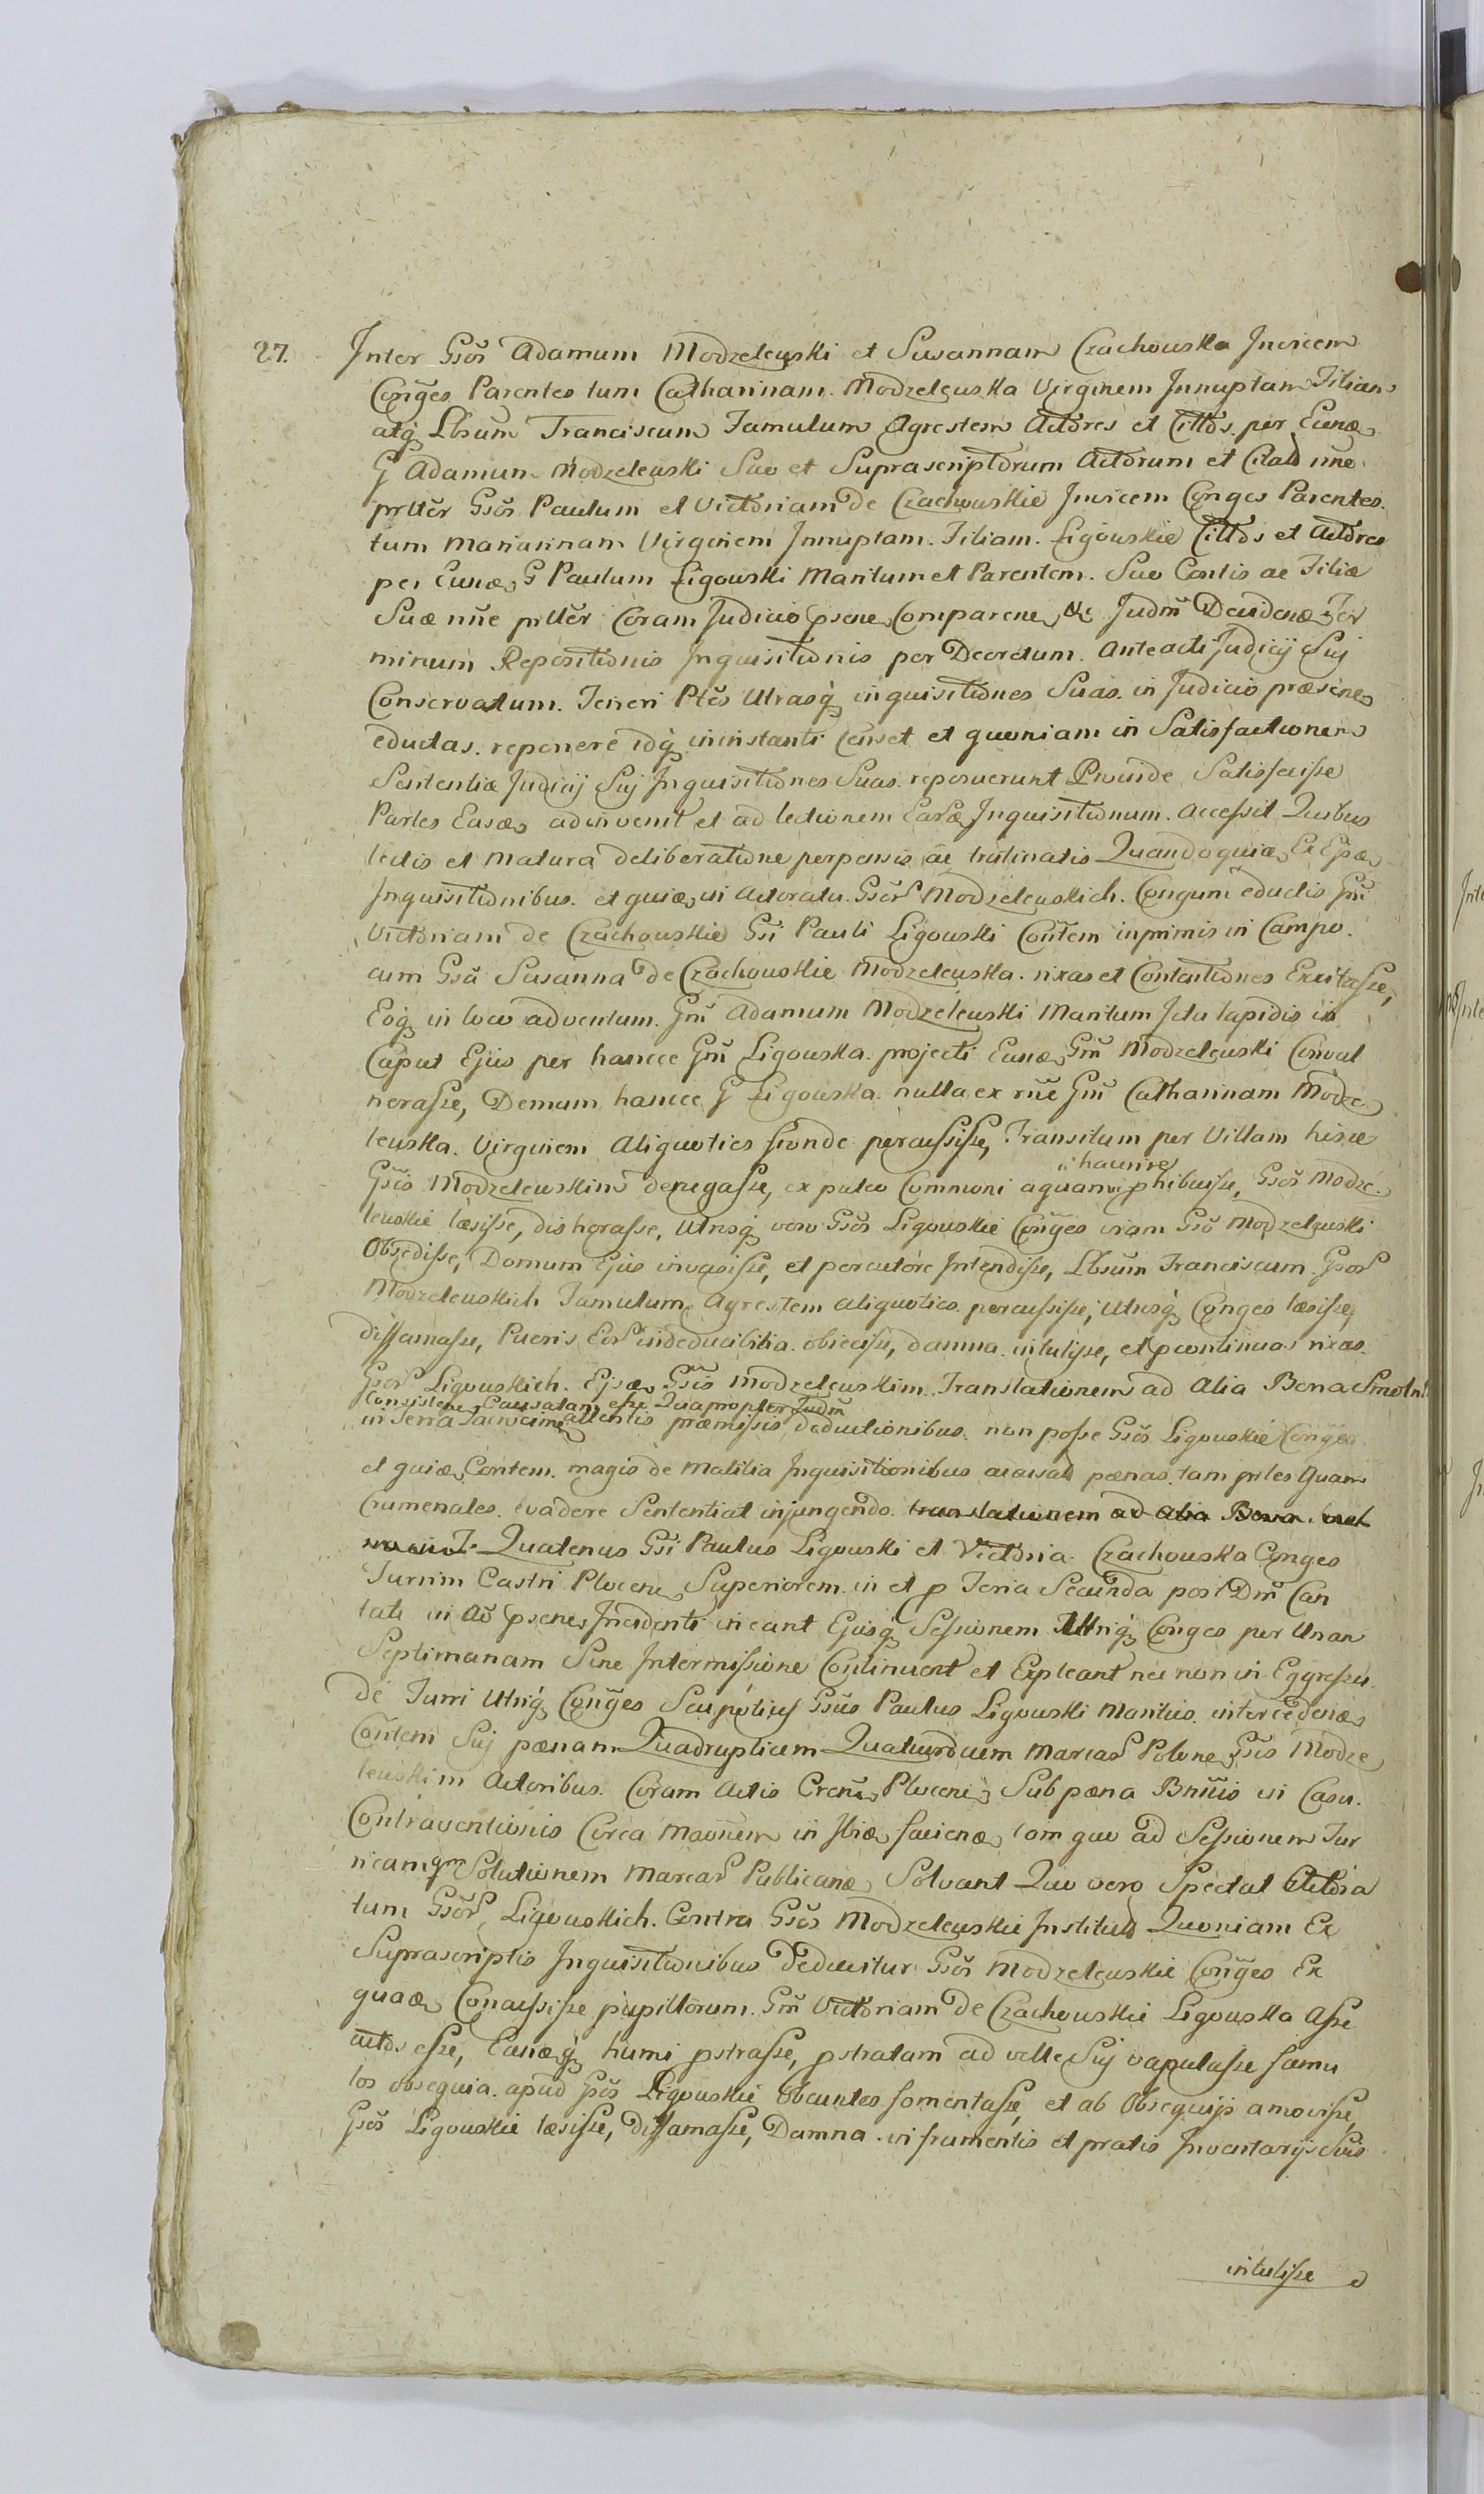 27. Inter Gsos Adamum Modzelewski et Susannam Czachowska Invicem
Conges Parentes tum Catharinam Modzelewska Virginem Innuptam Filiam
atq Lbsum Franciscum Famulum Agrestem Actores et Cittos per Eunæ
G Adamum Modzelewski Suo et Suprascriptorum Actorum et Citato nne
prtter Gsos Paulum et Victoriam de Czachowskie Invicem Conges Parentes
tum Mariannam Virginem Innuptam Filiam Ligowskie Cittos et Actores
per Eunæ G Paulum Ligowski Maritum et Parentem Suo Contis ac Filiæ
Suæ nne prtter Coram Judicio psene Comparene &c Judm Decidenæ Ter
minum Repositionis Inquisitionis per Decretum Anteacti Judicij Sui
Conservatum. Teneri Ptes Utrasq inquisitiones Suas in Judicio præsene
eductas reponere idq in instanti Censet et quoniam in Satisfactionem
Sententiæ Judicij Sui Inquisitiones Suas reposuerunt Proinde Satisfecisse
Partes Easæ adinvenit et ad lectionem Earæ Inquisitionum accessit Quibus
lectis et Matura deliberatione perpensis ac trutinatis Quandoquiæ Ex Epæ
Inquisitionibus et quiæ in Actoratu Gsor Modzelewskich Congum eductis Gm
Victoriam de Czachowskie Gsi Pauli Ligowski Contem inprimis in Campo
cum Gsa Susanna de Czachowskie Modzelewska rixas et Contentiones Excitasse,
Eoq in loco adventum Gm Adamum Modzelewski Maritum Ictu lapidis in
Caput Ejus per hancce Gm Ligowska projecti Eunæ Gm Modzelewski Convul
nerasse, Demum hancce G Ligowska nulla ex rne Gm Catharinam Modze
lewska Virginem Aliquoties fronde percussisse, Transitum per Villam hisce
Gsis Modzelewskim denegasse, ex puteo Communi aquam haurire phibuisse, Gsos Modze
lewskie læsisse, dishonrasse, Utrosq vero Gsos Ligowskie Conges viam Gso Modzelewski
Obsedisse, Domum Ejus invasisse, et percutere Intendisse, Lbsum Franciscum Gsor
Modzelewskich Famulum Agrestem aliquoties percussisse, Utrosq Conges læsisse,
diffamasse, Pueris Eor indeducibilia obiecisse, damna intulisse, et p continuas rixas
Gsor Ligowskich Ejsæ Gsis Modzelewskim Translationem ad Alia Bona
Consisten Causatam esse Quapropter Judm
in Terra attentis præmissis deductionibus non posse Gsos Ligowskie Conges
et quiæ Contem magis de Malitia Inquisitionibus pænas tam prles Quam
Crumenales evadere Sententiat injungendo translationem ad alia Bona
Quatenus Gsi Paulus Ligowski et Victoria Czachowska Conges
Turrim Castri Plocene Superiorem in et p Feria Secunda post Dm Can
tate in Ao psenes Incidenti ineant Ejusq Sessionem Utriq Conges per Unam
Septimanam Sine Intermissione Continuent et Expleant nec non in Eggressu
de Turri Utriq Conges Seu potius Gsus Paulus Ligowski Maritus intercedenæ
Contem Sui pænam Quadruplicem Quatuordecem Marcar Polone Gsis Modze
lewskim Actoribus Coram Actis Crens Plocens Sub pæna Bnnis in Casu
Contraventionis Circa Maonem in Ibiæ facienæ tam quo ad Sessionem Tur
ricam qm Solutionem Marcar Publicanæ Solvant Quo vero Spectat Actora
tum Gsor Ligowskich Contra Gsos Modzelewskie Institut Quoniam Ex
Suprascriptis Inquisitionibus Deducitur Gsos Modzelewskie Conges Ex
quaæ Concussisse pupillorum Gm Victoriam de Czachowskie Ligowska Asse
cutos esse, Eanæq humi pstrasse, pstratam ad velle Sui vapulasse famu
los obsequia apud Gsos Ligowskie Obeuntes fomentasse, et ab Obsequijs amovisse
Gsos Ligowskie læsisse, diffamasse, Damna in frumentis et pratis Inventarijs Suis
intulisse